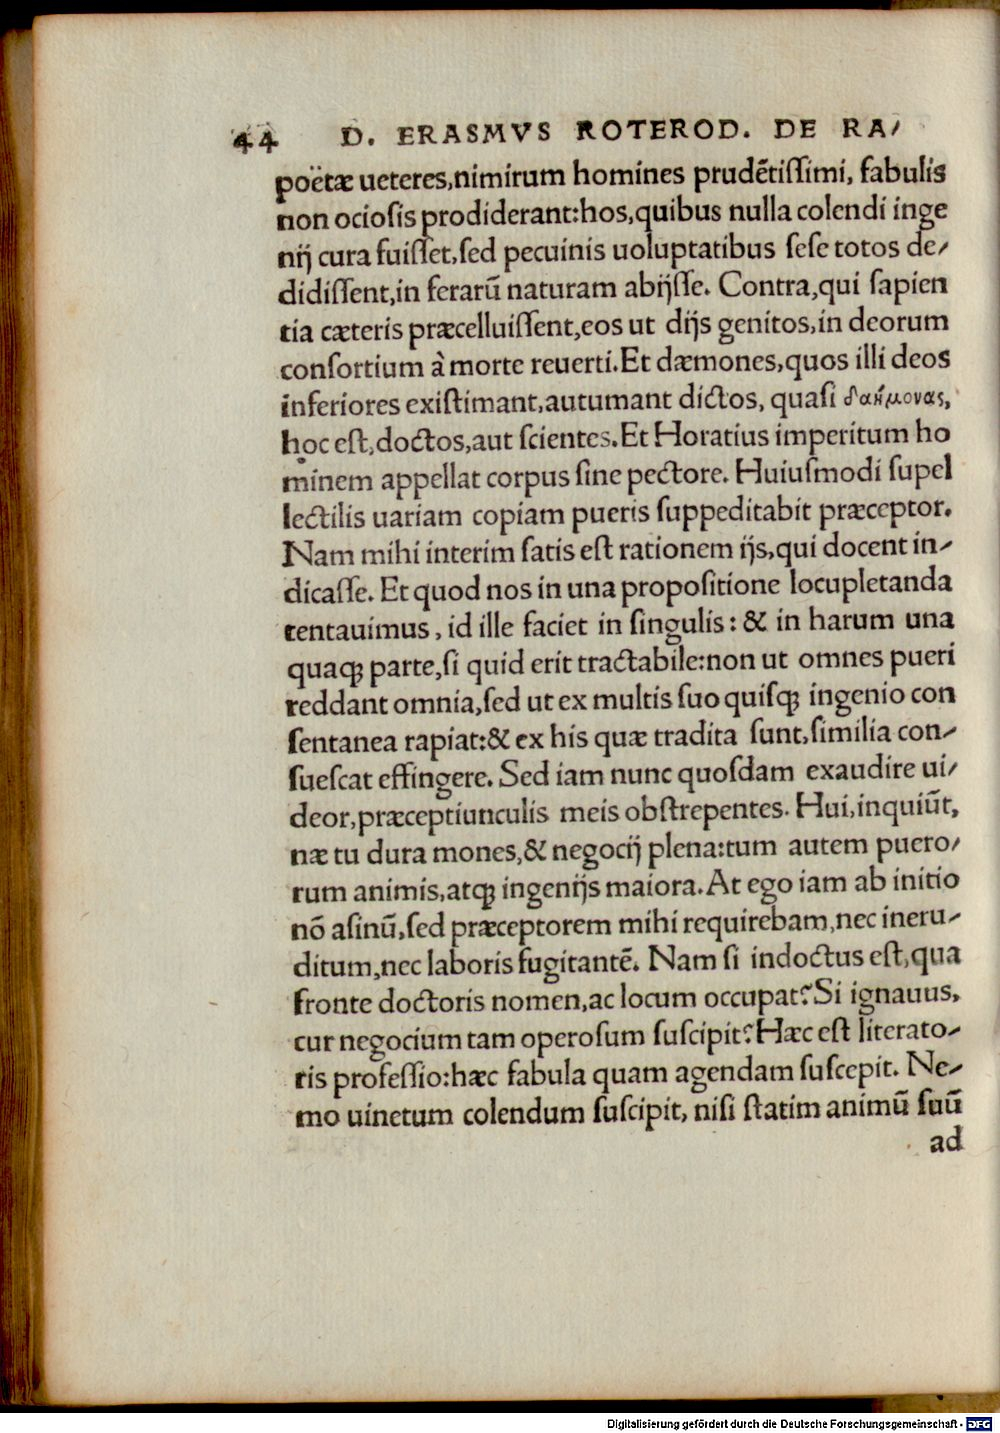 44 D. ERASMVS ROTEROD. DE RA/
poëtæ ueteres,nimirum homines prudẽtiſſimi, fabulis
non ocioſis prodiderant:hos,quibus nulla colendi inge
nij cura fuiſſet,ſed pecuinis uoluptatibus ſeſe totos de/
didiſſent,in ferarũ naturam abijſſe. Contra,qui ſapien
tia cæteris præcelluiſſent,eos ut dijs genitos,in deorum
conſortium à morte reuerti.Et dæmones,quos illi deos
inferiores exiſtimant,autumant dictos, quaſi δαήμονας,
hoc eſt,doctos,aut ſcientes.Et Horatius imperitum ho
minem appellat corpus ſine pectore. Huiuſmodi ſupel
lectilis uariam copiam pueris ſuppeditabit præceptor.
Nam mihi interim ſatis eſt rationem ijs,qui docent in/
dicaſſe. Et quod nos in una propoſitione locupletanda
tentauimus, id ille faciet in ſingulis: & in harum una
quaqꝫ parte,ſi quid erit tractabile:non ut omnes pueri
reddant omnia,ſed ut ex multis ſuo quiſqꝫ ingenio con
ſentanea rapiat:& ex his quæ tradita ſunt,ſimilia con/
ſueſcat effingere. Sed iam nunc quoſdam exaudire ui/
deor,præceptiunculis meis obſtrepentes. Hui,inquiũt,
næ tu dura mones,& negocij plena:tum autem puero/
rum animis,atqꝫ ingenijs maiora.At ego iam ab initio
nõ aſinũ,ſed præceptorem mihi requirebam,nec ineru/
ditum,nec laboris fugitantẽ. Nam ſi indoctus eſt,qua
fronte doctoris nomen,ac locum occupat?Si ignauus,
cur negocium tam operoſum ſuſcipit?Hæc eſt literato/
ris profeſſio:hæc fabula quam agendam ſuſcepit. Ne/
mo uinetum colendum ſuſcipit, niſi ſtatim animũ ſuũ
ad
Digitalisierung gefördert durch die Deutsche Forschungsgemeinschaft - DFG